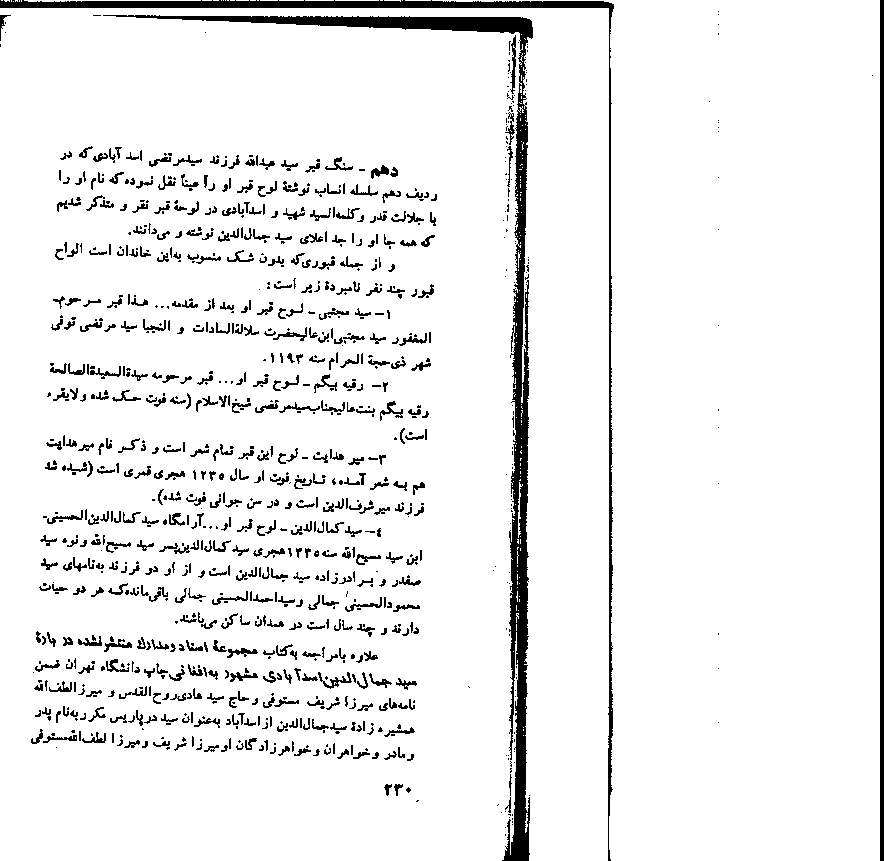 دهم - سنگ قبر سید عبدالله فرزند سیدمرتضی اسد آبادی‌که در
ردیف دهم سلسله انساب نوشتهٔ لوح قبر او را عیناً نقل نموده‌که نام او را
با جلالت قدر وکلمه‌السید شهید و اسدآبادی در لوحهٔ قبر نقر و متذکر شدیم
که همه جا او را جد اعلای سید جمال‌الدین نوشته و می‌دانند.
و از جمله قبوری‌که بدون شک منسوب به‌این خاندان است الواح
قبور چند نفر نامبردهٔ زیر است:
۱- سید مجتبی - لوح قبر او بعد از مقدمه... هذا قبر مرحوم-
المغفور سید مجتبی‌ابن‌عالیحضرت سلالةالسادات و النجبا سید مرتضی توفی
شهر ذی‌حجة الحرام سنه ۱۱۹۳.
۲- رقیه بیگم - لوح قبر او... قبر مرحومه سیدةالسعیدةالصالحة
رقیه بیگم بنت‌عالیجناب‌سیدمرتضی شیخ‌الاسلام (سنه فوت حک شده و لایقرء
است).
۳- میر هدایت - لوح این قبر تمام شعر است و ذکر نام میرهدایت
هم به شعر آمده، تاریخ فوت او سال ۱۲۳۵ هجری قمری است (شنیده شد
فرزند میرشرف‌الدین است و در سن جوانی فوت شده).
۴- سیدکمال‌الدین - لوح قبر او...آرامگاه سیدکمال‌الدین‌الحسینی-
ابن سید مسیح‌الله سنه ۱۳۳۵هجری سیدکمال‌الدین‌پسر سید مسیح‌الله و نوه سید
صفدر و برادرزاده سید جمال‌الدین است و از او دو فرزند به‌نامهای سید
محمودالحسینی جمالی وسیداحمدالحسینی جمالی باقی‌مانده‌که هر دو حیات
دارند و چند سال است در همدان ساکن می‌باشند.
علاوه بامراجعه به‌کتاب مجموعهٔ اسناد ومدارك منتشرنشده در بارهٔ
سید جمال‌الدین‌اسدآبادی مشهور به‌افغانی‌چاپ دانشگاه تهران ضمن
نامه‌های میرزا شریف مستوفی وحاج سید هادی‌روح‌القدس و میرزالطف‌الله
همشیره زادهٔ سیدجمال‌الدین از اسدآباد به‌عنوان سید درپاریس مکرر به‌نام پدر
ومادر وخواهران وخواهرزادگان اومیرزا شریف ومیرزا لطف‌الله‌مستوفی
۲۳۰